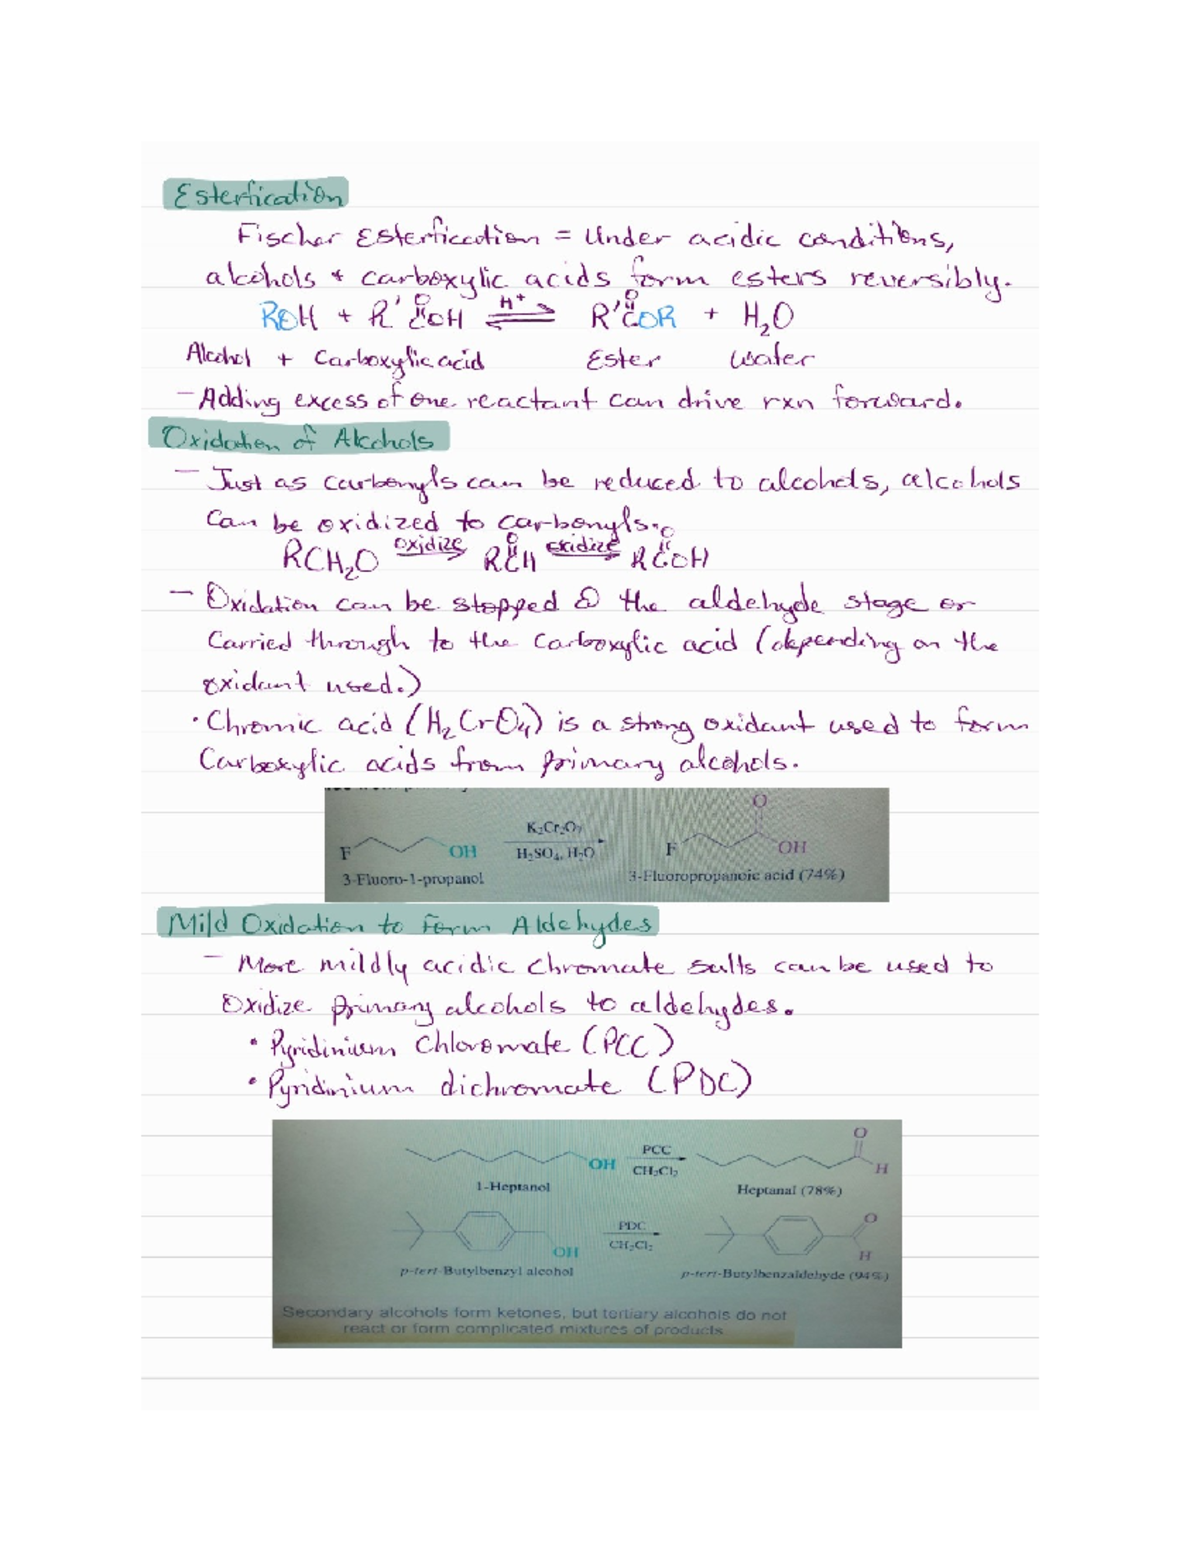 Esterfication
Fischer Esterfication = Under acidic conditions,
alcohols + carboxylic acids form esters reversibly.
O H+ O
ROH + R'COH ⇌ R'COR + H2O
Alcohol + Carboxylic acid Ester Water
- Adding excess of one reactant can drive rxn forward.
Oxidation of Alcohols
- Just as carbonyls can be reduced to alcohols, alcohols
can be oxidized to carbonyls.
oxidize O oxidize O
RCH2O → RCH → RCOH
- Oxidation can be stopped @ the aldehyde stage or
carried through to the carboxylic acid (depending on the
oxidant used.)
· Chromic acid (H2CrO4) is a strong oxidant used to form
Carboxylic acids from primary alcohols.
O
K2Cr2O7
F OH H2SO4, H2O F OH
3-Fluoro-1-propanol 3-Fluoropropanoic acid (74%)
Mild Oxidation to Form Aldehydes
- More mildly acidic chromate salts can be used to
Oxidize primary alcohols to aldehydes.
• Pyridinium Chloromate (PCC)
• Pyridinium dichromate (PDC)
O
PCC
OH CH2Cl2 H
1-Heptanol Heptanal (78%)
PDC O
OH CH2Cl2 H
p-tert-Butylbenzyl alcohol p-tert-Butylbenzaldehyde (94%)
Secondary alcohols form ketones, but tertiary alcohols do not
react or form complicated mixtures of products